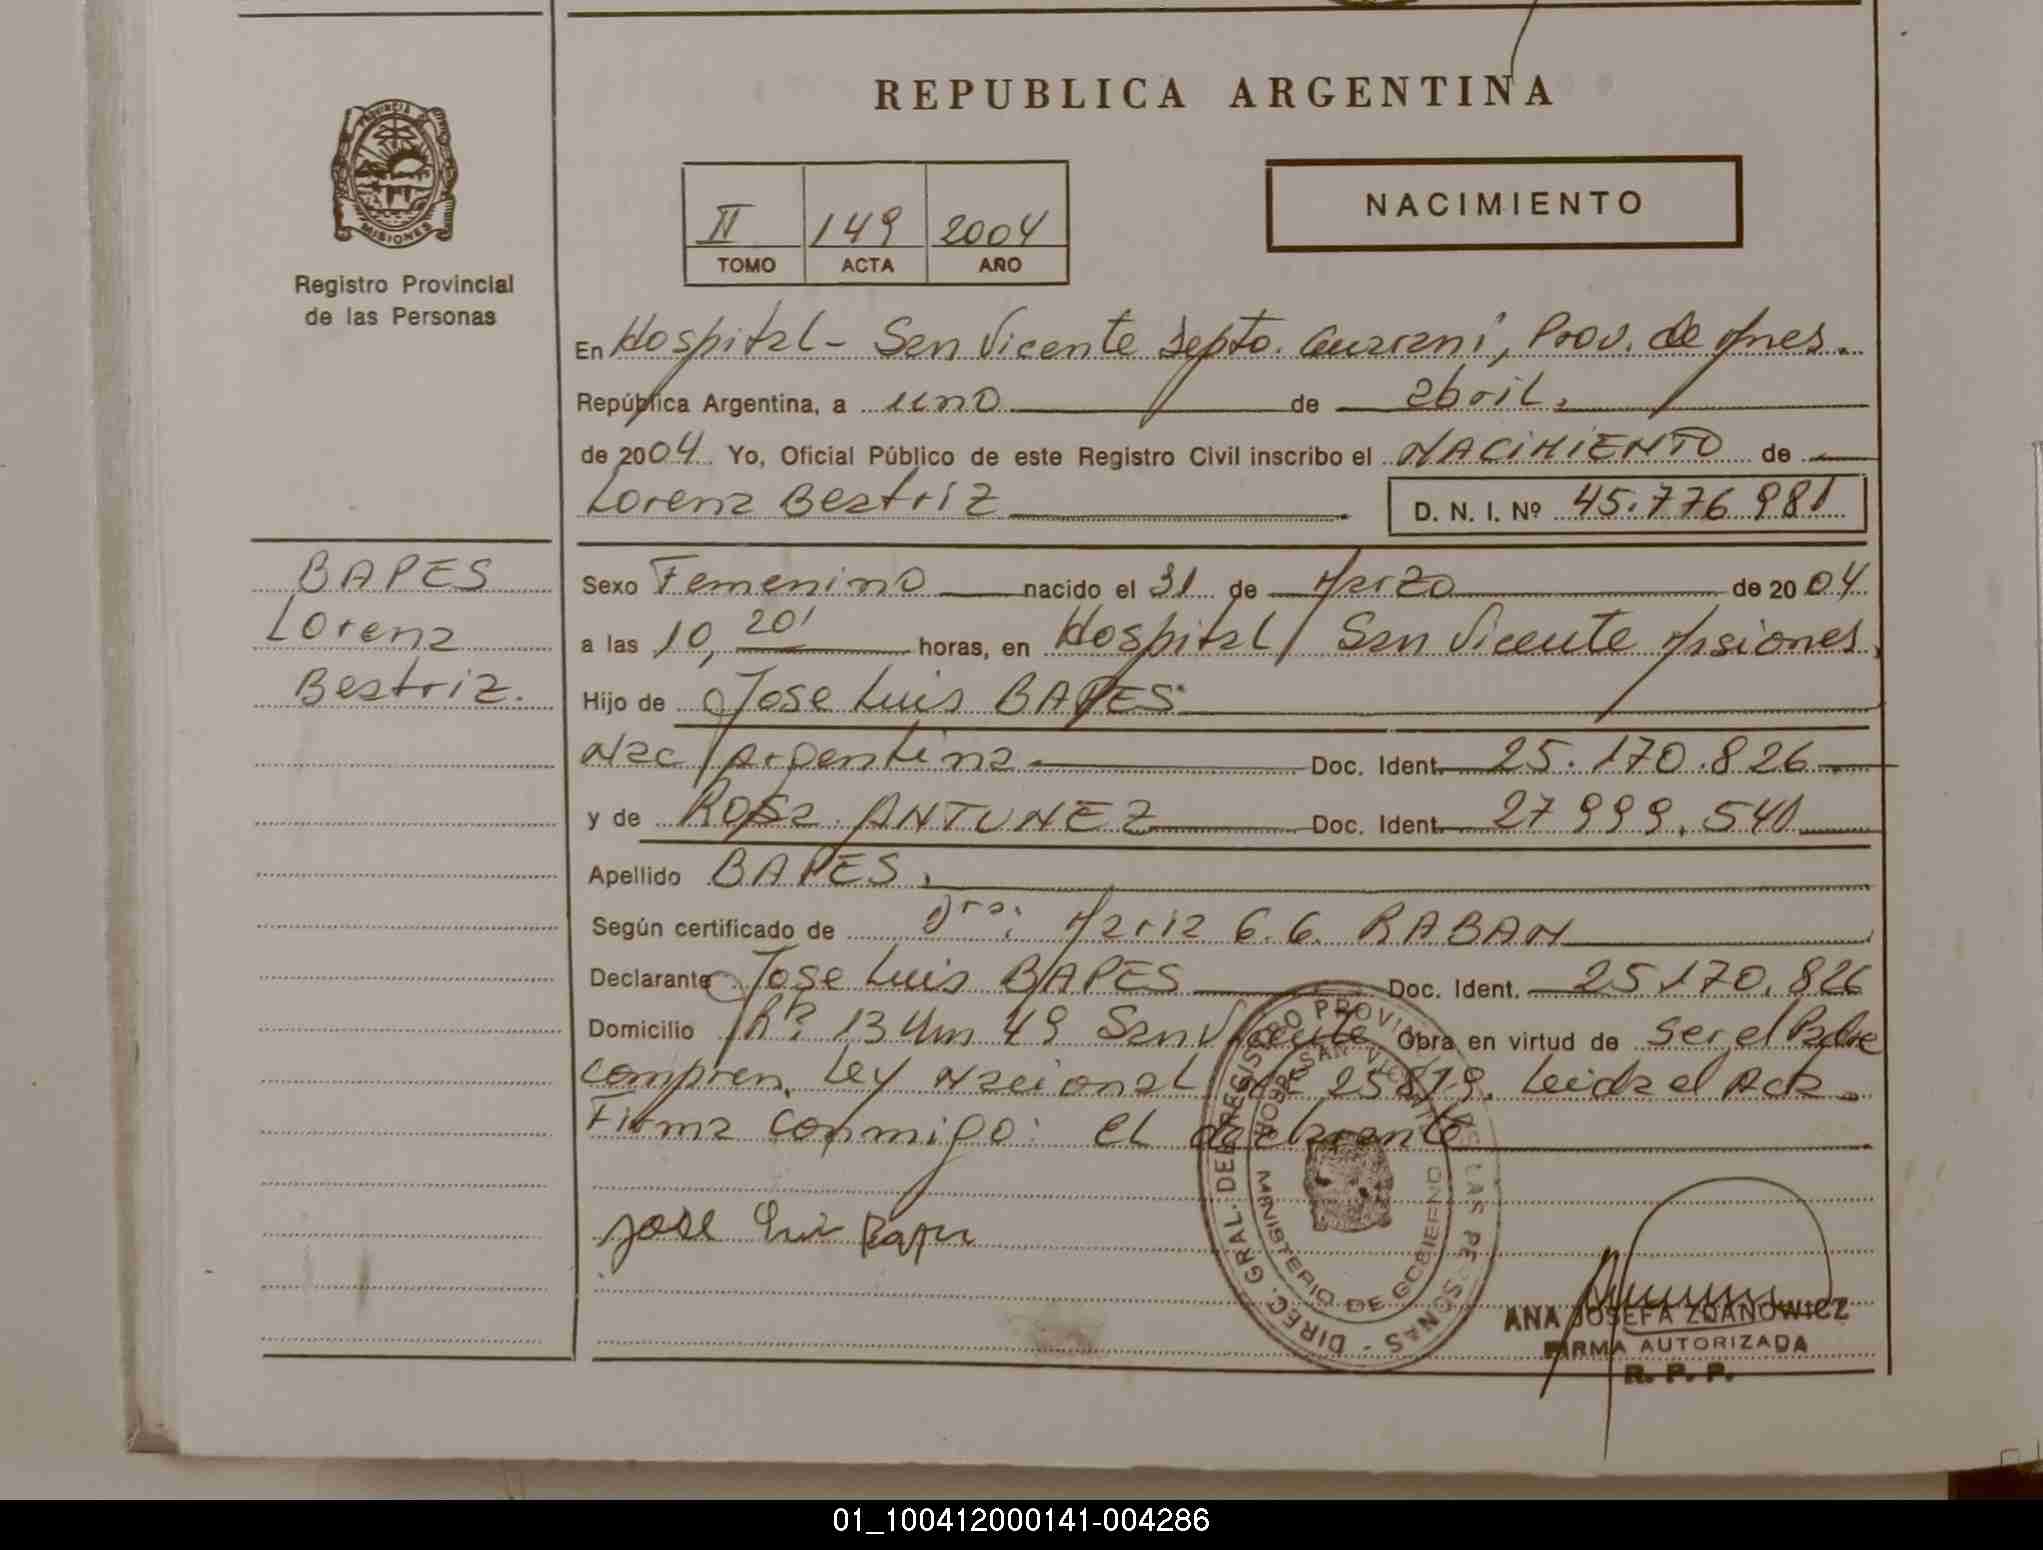 REPUBLICA ARGENTINA
PROVINCIA DE
MISIONES
Registro Provincial
de las Personas
II 149 2004
TOMO ACTA AÑO
NACIMIENTO
En Hospital - San Vicente Depto. Guarani, Prov. de Mnes.
República Argentina, a uno de abril,
de 2004 Yo, Oficial Público de este Registro Civil inscribo el NACIMIENTO de
Lorena Beatriz D. N. I. Nº 45.776 981
BAPES
Lorena
Beatriz.
Sexo Femenino nacido el 31 de Marzo de 2004
a las 10, 20' horas, en Hospital San Vicente Misiones.
Hijo de Jose Luis BAPES
Nac Argentina Doc. Ident. 25.170.826
y de Rosa ANTUNEZ Doc. Ident. 27 999.541
Apellido BAPES.
Según certificado de Dra: Maria G.G. RABAN
Declarante Jose Luis BAPES Doc. Ident. 25170.826
Domicilio Rta. 13 Km 49 San Vicente Obra en virtud de Ser el Padre
Compren. Ley Nacional Nº 25819. Leida el Acta
Firma conmigo: el declarante
Jose Luis Bapes
DIREC. GRAL. DEL REGISTRO PROVINCIAL DE LAS PERSONAS -
SAN VICENTE
MINISTERIO DE GOBIERNO
ANA JOSEFA ZDANOWICZ
FIRMA AUTORIZADA
R. P. P.
01_100412000141-004286